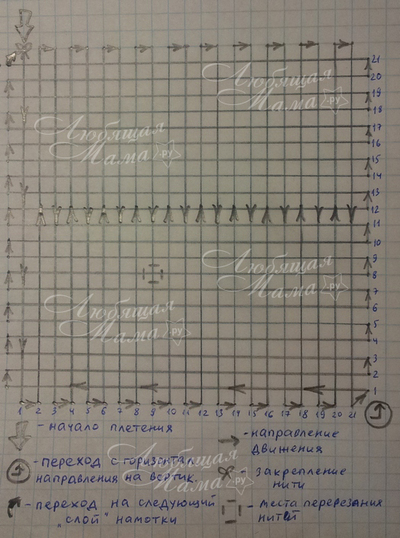 Любящая
Мама.ру
Любящая
Мама.ру
Любящая
Мама.ру
Любящая
Мама.ру
21
20
19
18
17
16
15
14
13
12
11
10
9
8
7
6
5
4
3
2
1
1 2 3 4 5 6 7 8 9 10 11 12 13 14 15 16 17 18 19 20 21
- начало плетения
- направление
движения
- переход с горизонтал.
направления на вертик.
- закрепление
нити
- переход на следующий
"слой" намотки
- места перерезания
нитей